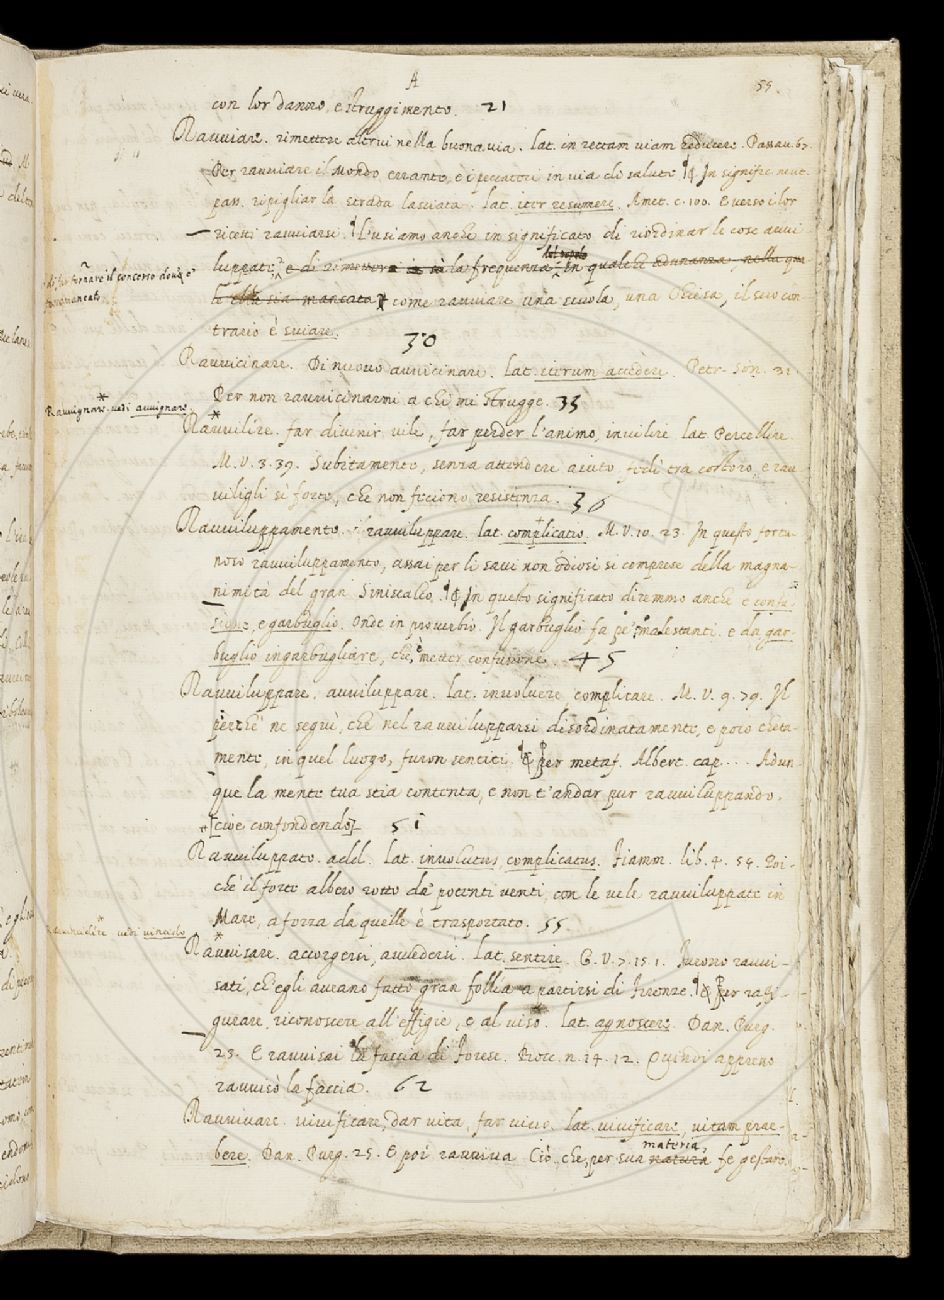 A
55.
con lor danno, e struggimento. 21
Rauuiare. rimettere altrui nella buona uia. lat. in rectam uiam reducere. Passau. 67.
Per rauuiare il Mondo errante, e i peccatori in uia di salute. In signific. neut.
pass. ripigliar la strada lasciata. lat. iter resumere. Amet. c. 100. E uerso i lor
ricesti rauuiarsi. L'usiamo anche in significato di riordinar le cose auui-
luppate, e di rimettere in sù la frequenza in qualche adunanza, nella qua-
le ella sia mancata, come rauuiare una scuola, una Chiesa, il suo con-
trario è suiare. 30
Rauuicinare. Di nuouo auuicinare. Lat. iterum accedere. Petr. Son. 31
Per non rauuicinarmi a chi mi strugge. 33
Rauuignare. uedi auuignare.
Rauuilire. far diuenir uile, far perder l'animo, inuilire lat. Percellere.
M. V. 3. 39. Subitamente, senza attendere aiuto, fedì tra costoro, e rau-
uiligli sì forte, che non ficiono resistenza. 36
Rauuiluppamento. il rauuiluppare. lat. complicatio. M. V. 10. 23. In questo fortu-
noso rauuiluppamento, assai per li saui non odiosi si comprese della magna-
nimità del gran Siniscalco. In questo significato diremmo anche e confu-
sione, e garbuglio. Onde in prouerbio. Il garbuglio fa pe' malestanti. e da gar-
buglio ingarbugliare, che è metter confusione. 45
Rauuiluppare. auuiluppare. lat. inuoluere complicare. M. V. 9. 79. Il
perchè ne seguì, che nel rauuilupparsi disordinatamente, e poco cheta-
mente, in quel luogo, furon sentiti. Per metaf. Albert. cap. ... Adun-
que la mente tua stia contenta, e non t'andar pur rauuiluppando,
[cioè confondendo] 51
Rauuiluppato. add. lat. inuolutus, complicatus. Fiamm. lib. 4. 54. Poi-
chè il forte albero rotto da potenti uenti, con le uele rauuiluppate in
Mare, a forza da quelle è trasportato. 55
uedi uinciglio
Rauuisare. accorgersi, auuedersi. lat. sentire. G. V. 7. 15. 1. Furono rauui-
sati, ch'egli aueano fatto gran follia a partirsi di Firenze. Per rafi-
gurare, riconoscere all'effigie, e al uiso. lat. agnoscere. Dan. Purg.
23. E rauuisai la faccia di Forese. Bocc. n. 14. 12. Quindi appresso
rauuisò la faccia. 62
Rauuiuare. uiuificare, dar uita, far uiuo. lat. uiuificare, uitam prae-
bere. Dan. Purg. 25. E poi rauuiua Ciò, che per sua natura materia, fe gestare.